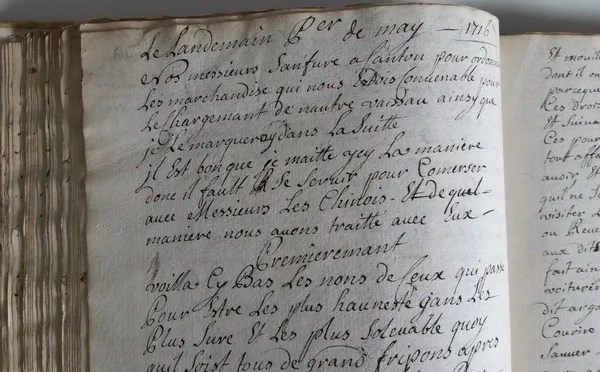 Le Landemain Per de may — 1716
Nos messieurs Sanfure a Canton pour ordonner
Les marchandise qui nous Estois Conuenable pour
Le Chargemant de nautre vaissau ainsy que
je Le margueray dans La Suitte
jl Est bon que je maitte ycy La maniere
donc il fault Se Seruir pour Comerser
auec Messieurs Les Chinois. Et de quel-
maniere nous auons traitté auec Eux-
Premieremant
voilla Cy Bas Les nons de Ceux qui passe
Pour Etre Les plus hauneste gans Les
Plus Sure Et Les plus Soluable quoy
quil Soist tous de grand fripons apres
Et
dont il
parceque
Et Suiua
Ces pour
tout affa
auoir Et
quil ne
visiter
ou Reue
aux dit
fait ain
voiturer
dit arg
Couurire
Sauuer